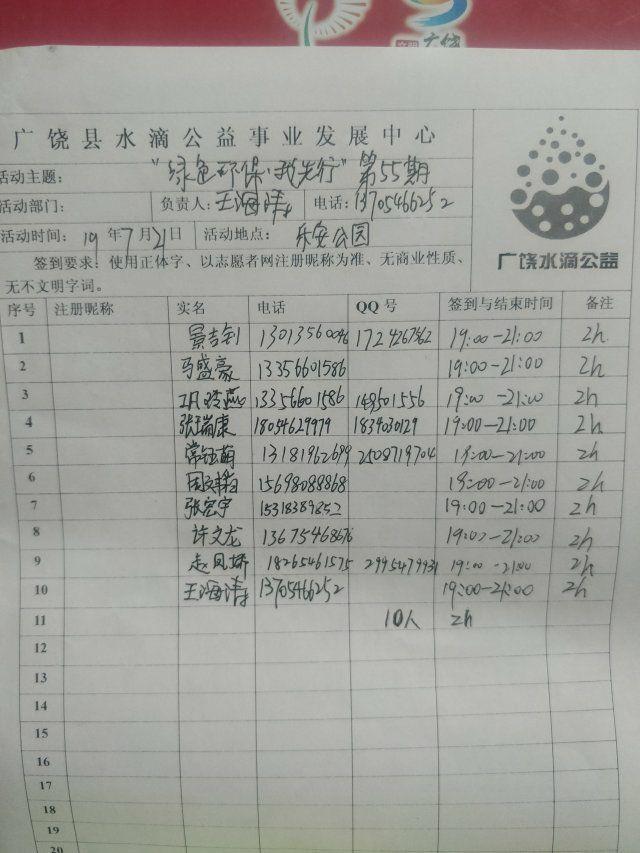 广饶县水滴公益事业发展中心
活动主题： “绿色环保，我先行”第55期
活动部门： 负责人：王海涛 电话：13705466252
活动时间： 19年7月21日 活动地点： 乐安公园
广饶水滴公益
签到要求：使用正体字、以志愿者网注册昵称为准、无商业性质、
无不文明字词。
序号 注册昵称 实名 电话 QQ 号 签到与结束时间 备注
1 景吉钊 13013560046 1724267562 19:00-21:00 2h
2 马盛豪 13356601586 19:00-21:00 2h
3 13356601586 149501556 19:00-21:00 2h
4 张瑞康 18054629979 1839030129 19:00-21:00 2h
5 常钰萌 13181962699 2508719704 19:00-21:00 2h
6 15698088868 19:00-21:00 2h
7 张宏宇 15318389852 19:00-21:00 2h
8 许文龙 13675468676 19:00-21:00 2h
9 赵凤娇 18265461575 2995479931 19:00-21:00 2h
10 王海涛 13705466252 19:00-21:00 2h
11 10人 2h
12
13
14
15
16
17
18
19
20